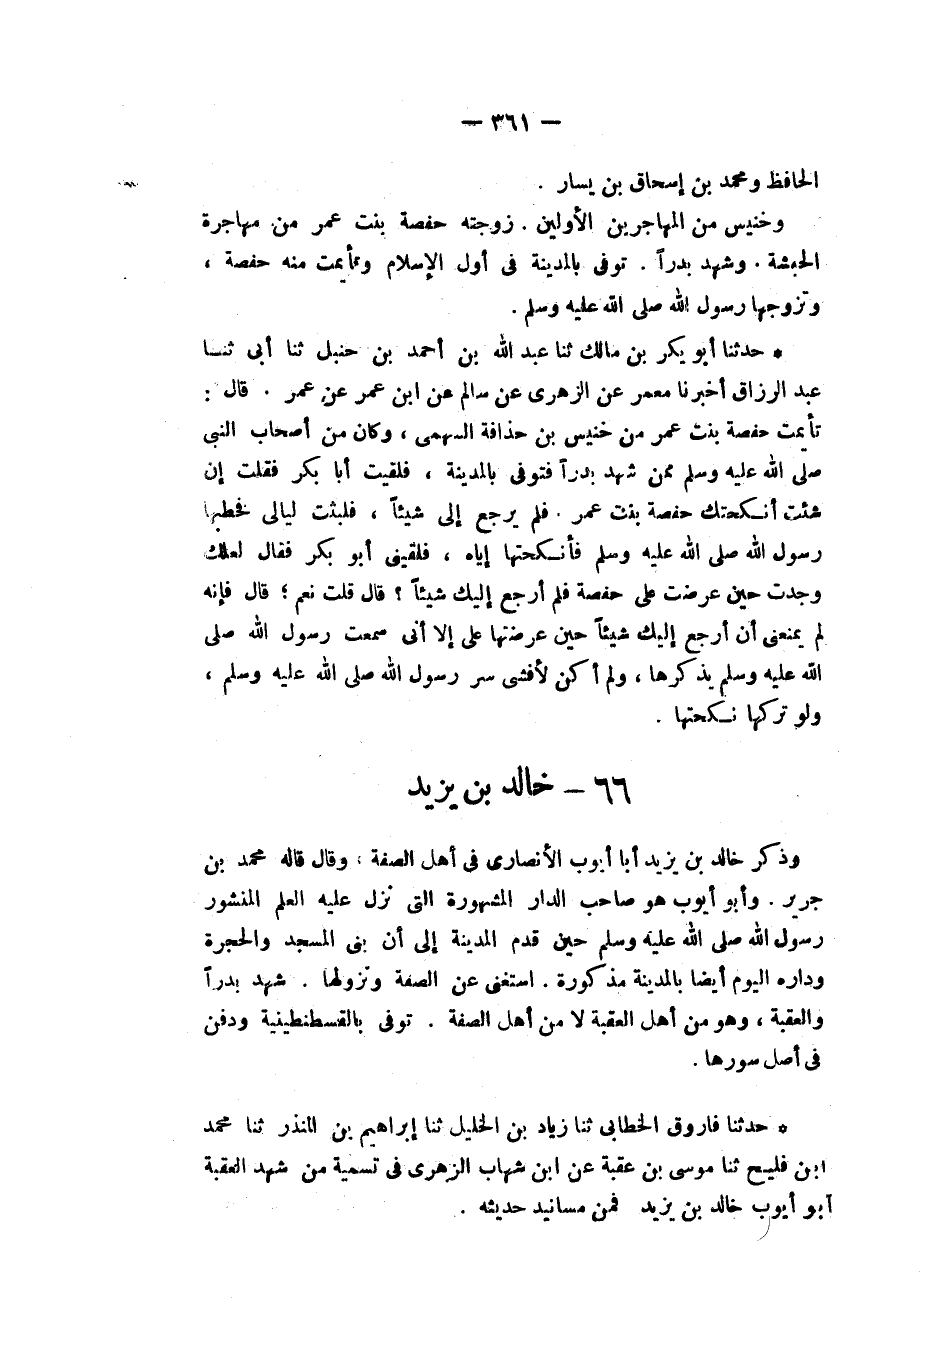 — ٣٦١ —
الحافظ ومحمد بن إسحاق بن يسار .
وخنيس من المهاجرين الأولين . زوجته حفصة بنت عمر من مهاجرة
الحبشة . وشهد بدراً . توفى بالمدينة فى أول الإسلام وتأيمت منه حفصة ،
وتزوجها رسول الله صلى الله عليه وسلم .
* حدثنا أبو بكر بن مالك ثنا عبد الله بن أحمد بن حنبل ثنا أبى ثنا
عبد الرزاق أخبرنا معمر عن الزهرى عن سالم عن ابن عمر عن عمر . قال :
تأيمت حفصة بنت عمر من خنيس بن حذافة السهمى ، وكان من أصحاب النبى
صلى الله عليه وسلم ممن شهد بدراً فتوفى بالمدينة ، فلقيت أبا بكر فقلت إن
شئت أنكحتك حفصة بنت عمر . فلم يرجع إلى شيئاً ، فلبثت ليالى فخطبها
رسول الله صلى الله عليه وسلم فأنكحتها إياه ، فلقينى أبو بكر فقال لعلك
وجدت حين عرضت على حفصة فلم أرجع إليك شيئاً ؟ قال قلت نعم ؛ قال فإنه
لم يمنعنى أن أرجع إليك شيئاً حين عرضتها على إلا أنى سمعت رسول الله صلى
الله عليه وسلم يذكرها ، ولم أكن لأفشى سر رسول الله صلى الله عليه وسلم ،
ولو تركها نكحتها .
٦٦ – خالد بن يزيد
وذكر خالد بن يزيد أبا أيوب الأنصارى فى أهل الصفة ، وقال قاله محمد بن
جرير . وأبو أيوب هو صاحب الدار المشهورة التى نزل عليه العلم المنشور
رسول الله صلى الله عليه وسلم حين قدم المدينة إلى أن بنى المسجد والحجرة
وداره اليوم أيضا بالمدينة مذكورة . استغنى عن الصفة ونزولها . شهد بدراً
والعقبة ، وهو من أهل العقبة لا من أهل الصفة . توفى بالقسطنطينية ودفن
فى أصل سورها .
* حدثنا فاروق الخطابى ثنا زياد بن الخليل ثنا إبراهيم بن المنذر ثنا محمد
ابن فليح ثنا موسى بن عقبة عن ابن شهاب الزهرى فى تسمية من شهد العقبة
أبو أيوب خالد بن يزيد فمن مسانيد حديثه .